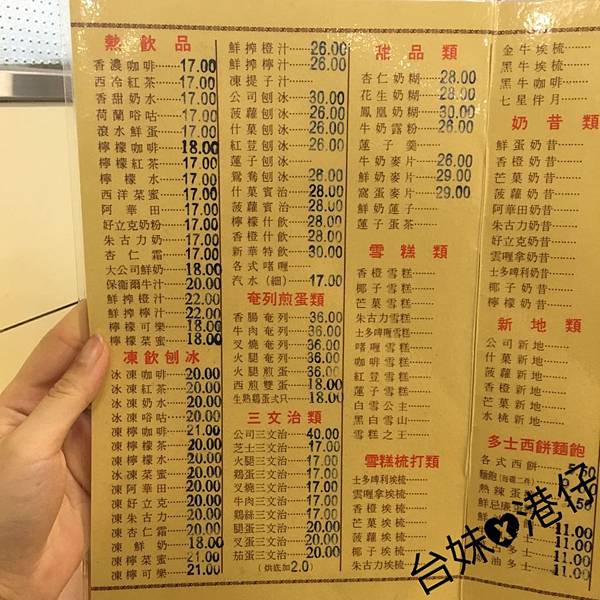 熱飲品
香濃咖啡 17.00
西冷紅茶 17.00
香甜奶水 17.00
荷蘭唂咕 17.00
滾水鮮蛋 17.00
檸檬咖啡 18.00
檸檬紅茶 17.00
檸檬水 17.00
西洋菜蜜 17.00
阿華田 17.00
好立克奶粉 17.00
朱古力奶 17.00
杏仁霜 17.00
大公司鮮奶 18.00
保衛爾牛汁 20.00
鮮搾橙汁 22.00
鮮搾檸汁 22.00
檸檬可樂 18.00
檸檬菜蜜 18.00
凍飲刨冰
冰凍咖啡 20.00
冰凍紅茶 20.00
冰凍奶水 20.00
冰凍唂咕 20.00
凍檸咖啡 21.00
凍檸檬茶 20.00
凍檸檬水 20.00
凍菜蜜冰 20.00
凍阿華田 20.00
凍好立克 20.00
凍朱古力 20.00
凍杏仁霜 20.00
凍鮮奶 18.00
凍檸菜蜜 21.00
凍檸可樂 21.00
鮮搾橙汁 26.00
鮮搾檸汁 26.00
凍提子汁
公司刨冰 30.00
菠蘿刨冰 26.00
什菓刨冰 26.00
紅荳刨冰 26.00
蓮子刨冰
鴛鴦刨冰 26.00
什菓賓治 28.00
菠蘿賓治 28.00
檸檬什飲 28.00
香橙什飲 28.00
新華特飲 30.00
各式啫喱
汽水(細) 17.00
奄列煎蛋類
香腸奄列 36.00
牛肉奄列 36.00
叉燒奄列 36.00
火腿奄列 36.00
西煎雙蛋 18.00
生熟鷄蛋弍只 18.00
三文治類
公司三文治 40.00
芝士三文治 17.00
火腿三文治 17.00
鷄蛋三文治 17.00
叉燒三文治 17.00
牛肉三文治 17.00
鷄絲三文治 17.00
腿蛋三文治 20.00
叉蛋三文治 20.00
茄蛋三文治 20.00
(烘底加2.0)
甜品類
杏仁奶糊 28.00
花生奶糊 28.00
鳳凰奶糊 30.00
牛奶露粉 26.00
蓮子羹
牛奶麥片 26.00
鮮奶麥片 29.00
窩蛋麥片 29.00
鮮奶蓮子
蓮子蛋茶
雪糕類
香橙雪糕
椰子雪糕
芒菓雪糕
朱古力雪糕
士多啤喱雪糕
啫喱雪糕
咖啡雪糕
紅荳雪糕
蓮子雪糕
白雪公主
黑白雪山
雪糕之王
雪糕梳打類
士多啤喱埃梳
雲喱拿埃梳
香橙埃梳
芒菓埃梳
菠蘿埃梳
椰子埃梳
朱古力埃梳
金牛埃梳
黑牛埃梳
黑牛咖啡
七星伴月
奶昔類
鮮蛋奶昔
香橙奶昔
芒菓奶昔
菠蘿奶昔
阿華田奶昔
朱古力奶昔
好立克奶昔
雲喱拿奶昔
士多啤利奶昔
椰子奶昔
檸檬奶昔
新地類
公司新地
什菓新地
菠蘿新地
香橙新地
芒菓新地
水桃新地
多士西餅麵飽
各式西餅
麵飽(每碟二件)
熱辣蛋
鮮忌廉
11.00
士 11.00
油多士 11.00
台妹港仔